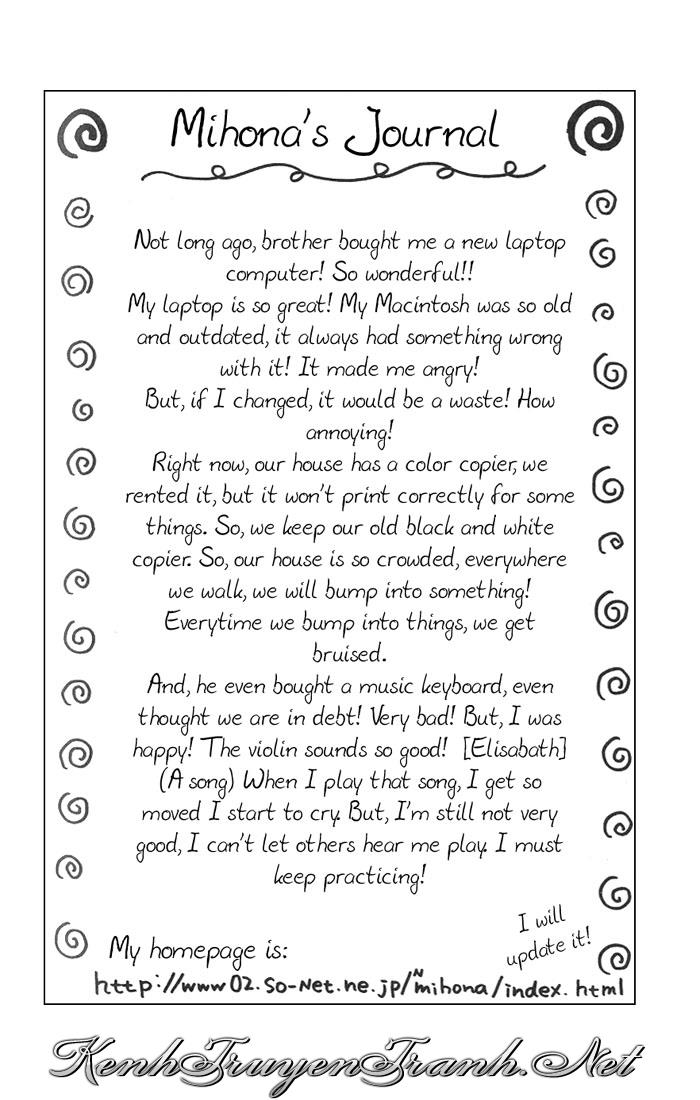 Mihona's Journal
Not long ago, brother bought me a new laptop
computer! So wonderful!!
My laptop is so great! My Macintosh was so old
and outdated, it always had something wrong
with it! It made me angry!
But, if I changed, it would be a waste! How
annoying!
Right now, our house has a color copier, we
rented it, but it won't print correctly for some
things. So, we keep our old black and white
copier. So, our house is so crowded, everywhere
we walk, we will bump into something!
Everytime we bump into things, we get
bruised.
And, he even bought a music keyboard, even
thought we are in debt! Very bad! But, I was
happy! The violin sounds so good! [Elisabath]
(A song) When I play that song, I get so
moved I start to cry. But, I'm still not very
good, I can't let others hear me play. I must
keep practicing!
I will
update it!
My homepage is:
http://www02.so-net.ne.jp/~mihona/index.html
KenhTruyenTranh.Net